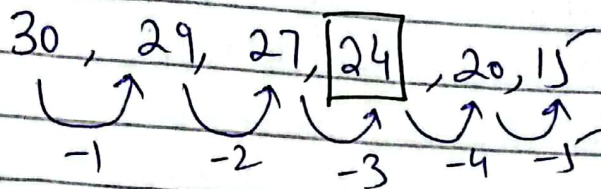 30, 29, 27, 24, 20, 15
-1 -2 -3 -4 -5